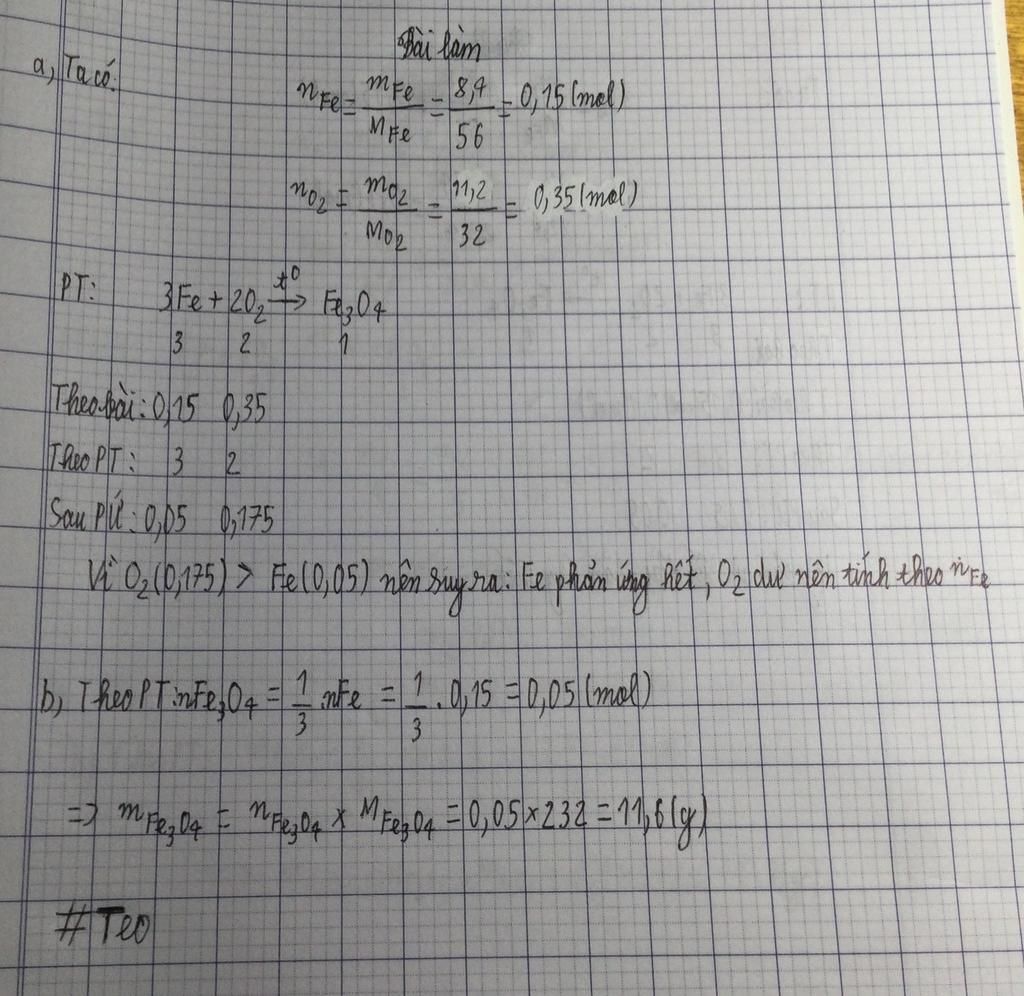 Bài làm
a, Ta có:
n_Fe = m_Fe / M_Fe = 8,4 / 56 = 0,15 (mol)
n_O₂ = m_O₂ / M_O₂ = 11,2 / 32 = 0,35 (mol)
PT: 3Fe + 2O₂ →(t⁰) Fe₃O₄
3 2 1
Theo bài: 0,15 0,35
Theo PT: 3 2
Sau PỨ: 0,05 0,175
Vì O₂(0,175) > Fe(0,05) nên suy ra: Fe phản ứng hết, O₂ dư nên tính theo n_Fe
b, Theo PT: nFe₃O₄ = 1/3 . nFe = 1/3 . 0,15 = 0,05 (mol)
=> m_Fe₃O₄ = n_Fe₃O₄ × M_Fe₃O₄ = 0,05 × 232 = 11,6 (g)
# Teo